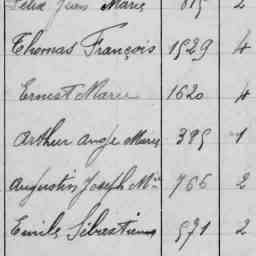 Félix Jean Marie 815 2
Thomas François 1529 4
Ernest Marie 1620 4
Arthur Ange Marie 395 1
Augustin Joseph Mie 766 2
Emile Sébastien 571 2